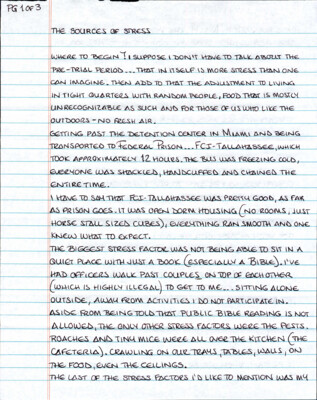 PG 1 OF 3
THE SOURCES OF STRESS
WHERE TO BEGIN? I SUPPOSE I DON'T HAVE TO TALK ABOUT THE
PRE-TRIAL PERIOD... THAT IN ITSELF IS MORE STRESS THAN ONE
CAN IMAGINE. THEN ADD TO THAT THE ADJUSTMENT TO LIVING
IN TIGHT QUARTERS WITH RANDOM PEOPLE, FOOD THAT IS MOSTLY
UNRECOGNIZABLE AS SUCH AND FOR THOSE OF US WHO LIKE THE
OUTDOORS - NO FRESH AIR.
GETTING PAST THE DETENTION CENTER IN MIAMI AND BEING
TRANSPORTED TO FEDERAL PRISON... FCI-TALLAHASSEE, WHICH
TOOK APPROXIMATELY 12 HOURS. THE BUS WAS FREEZING COLD,
EVERYONE WAS SHACKLED, HANDCUFFED AND CHAINED THE
ENTIRE TIME.
I HAVE TO SAY THAT FCI-TALLAHASSEE WAS PRETTY GOOD, AS FAR
AS PRISON GOES. IT WAS OPEN DORM HOUSING (NO ROOMS, JUST
HORSE STALL SIZED CUBES), EVERYTHING RAN SMOOTH AND ONE
KNEW WHAT TO EXPECT.
THE BIGGEST STRESS FACTOR WAS NOT BEING ABLE TO SIT IN A
QUIET PLACE WITH JUST A BOOK (ESPECIALLY A BIBLE). I'VE
HAD OFFICERS WALK PAST COUPLES ON TOP OF EACH OTHER
(WHICH IS HIGHLY ILLEGAL) TO GET TO ME... SITTING ALONE
OUTSIDE, AWAY FROM ACTIVITIES I DO NOT PARTICIPATE IN.
ASIDE FROM BEING TOLD THAT PUBLIC BIBLE READING IS NOT
ALLOWED, THE ONLY OTHER STRESS FACTORS WERE THE PESTS.
ROACHES AND TINY MICE WERE ALL OVER THE KITCHEN (THE
CAFETERIA). CRAWLING ON OUR TRAYS, TABLES, WALLS, ON
THE FOOD, EVEN THE CEILINGS.
THE LAST OF THE STRESS FACTORS I'D LIKE TO MENTION WAS MY